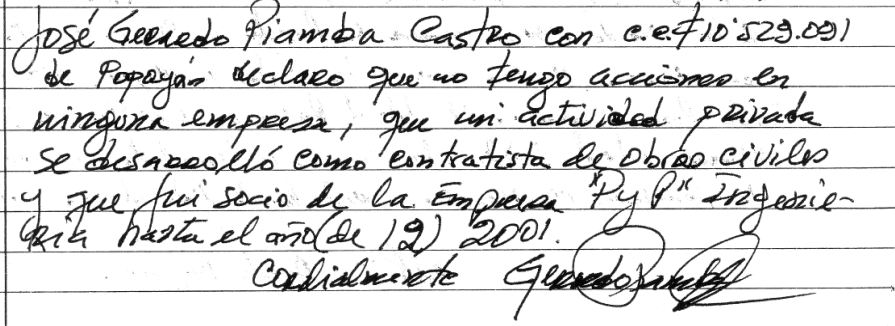 José Gerardo Piamba Castro con c.c.# 10'529.091
de Popayán declaro que no tengo acciones en
ninguna empresa, que mi actividad privada
se desarrolló como contratista de obras civiles
y que fui socio de la Empresa "P y P" Ingenie-
ría hasta el año (de 12) 2001.
Cordialmente Gerardo Piamba